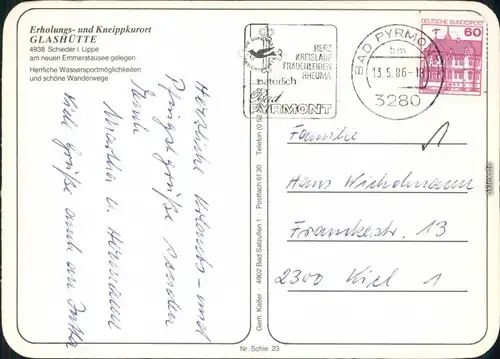 Erholungs- und Kneippkurort
GLASHÜTTE
4938 Schieder i. Lippe
am neuen Emmerstausee gelegen
Herrliche Wassersportmöglichkeiten
und schöne Wanderwege
HERZ
KREISLAUF
FRAUENLEIDEN
RHEUMA
natürlich
Bad
PYRMONT
BAD PYRMONT
bm
13.5.86-18
3280
DEUTSCHE BUNDESPOST
60
Herzliche Urlaubs- und
Pfingstgrüße senden
Martha u. Hermann
Viele Grüße auch an Jutta
Gerh. Kaifer · 4902 Bad Salzuflen 1 · Postfach 61 30 · Telefon (0 52
Familie
Hans Wichelmann
Franckestr. 13
2300 Kiel 1
Nr. Schie. 23